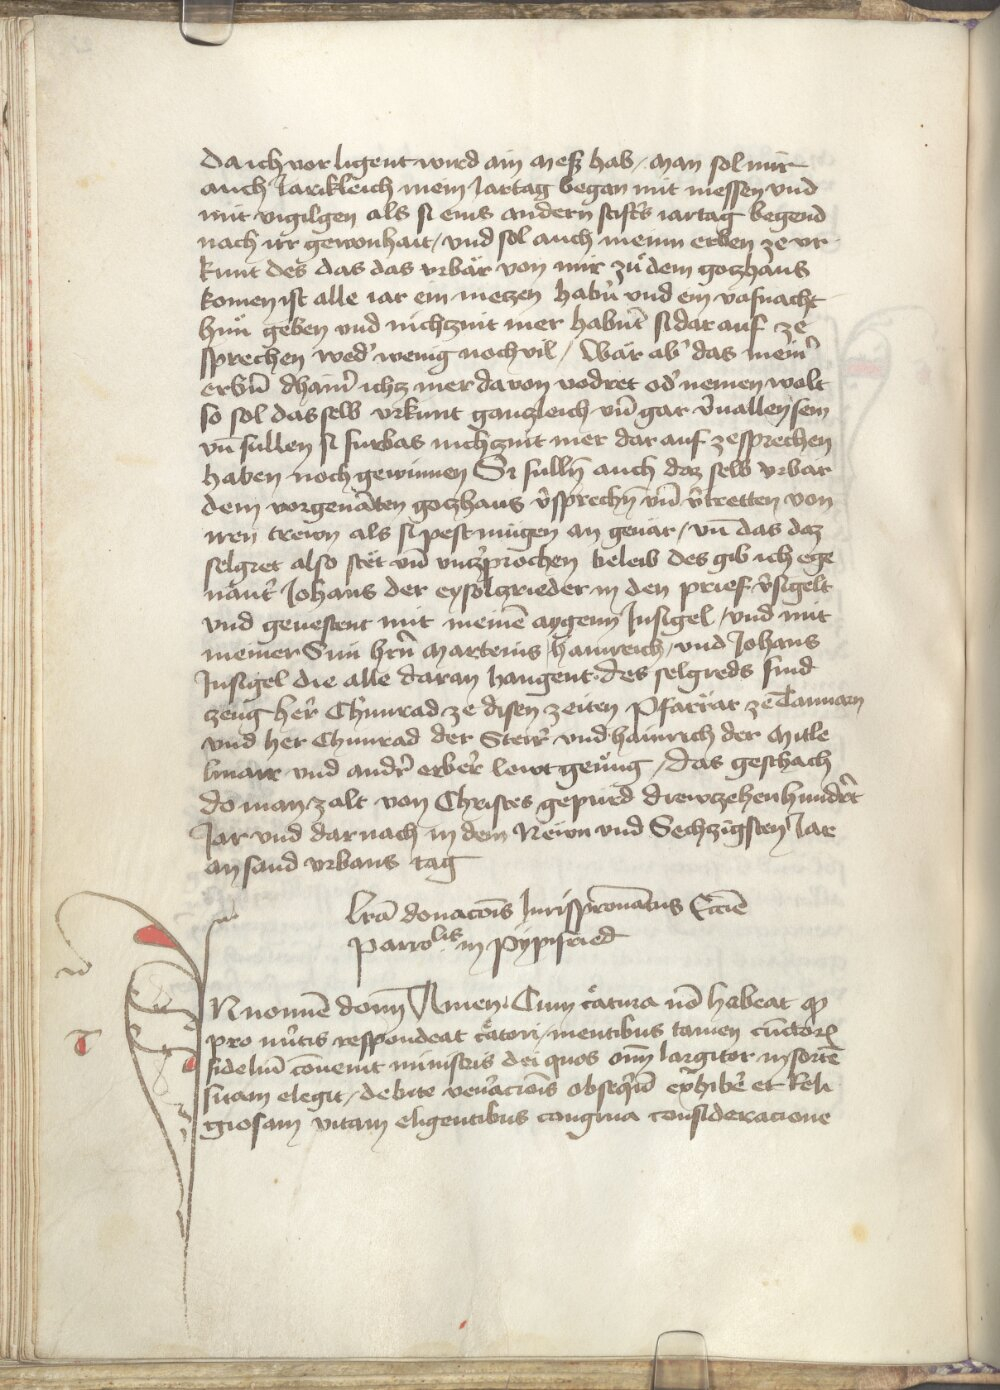 da ich vor ligent wird ain mess hab / man sol mir
auch Jarikleich mein Jartag began mit messen vnd
mit vigilgen als si eins andern stift̄s iartag begend
nach irr gewonhait / vnd sol auch meinn erben ze vr
kunt des das das vrbår von mir zů dem gotzhaus
komen ist alle iar ein metzen habn̄ vnd ein vasnacht
hůn geben vnd nichtznit mer habnt̄ si dar auf ze
sprechen wed̄ wenig noch vil / Wår ab̄ das mein̄
erbn̄ dhain̄ ichz mer da von vodret od̄ nemen wolt
so sol das selb vrkunt gantzleich vn̄ gar v̄uallen sein
vn̄ sullen si furbas nichtznit mer dar auf ze sprechen
haben noch gewinnen Si sulln̄ auch daz selb vrbar
dem vorgenān̄ten gotzhaus v̄sprechn̄ vn̄ v̄tretten von
iren trewn als si pest mugen an geuår / vn̄ das daz
selgret also ståt vn̄ vnzprochen beleib des gib ich ege
nant̄ Johans der eysoltzrieder in den prief v̄sigelt
vnd geuestent mit meinē aygenn Jnsigel / vnd mit
meiner Sun hr̄n Marteins / hainreich / vnd Johans
Jnsigel die alle daran hangent · des selgreds sind
zeug her̄ Chunrad ze disen zeiten Pfarrår ze Tannarn
vnd her Chunrad der Steir̄ vnd hainrich der Mitle
vnd andr̄ erber̄ lewt genůg / das geschach
do man zalt von Christes gepurd drewtzehenhundr̄t
Jar vnd dar nach in dem Newn vnd Sechtzigsten Jar
an sand vrbans tag
Lrā donacōis Jurispatronatus Ecc̄ie
Parrolis in Pypisried
IN nomīe domī Amen · Cum c̄atura nō habeat q̄
pro mr̄itis respondeat c̄atori / mentibus tamen cūctor
fideliū cōuenit ministris dei quos om̄ largitor in sortē
suam elegit / debite ven̄acionis obseq̄ū exhibē et Reli
giosam vitam eligentibus congrua consideracione